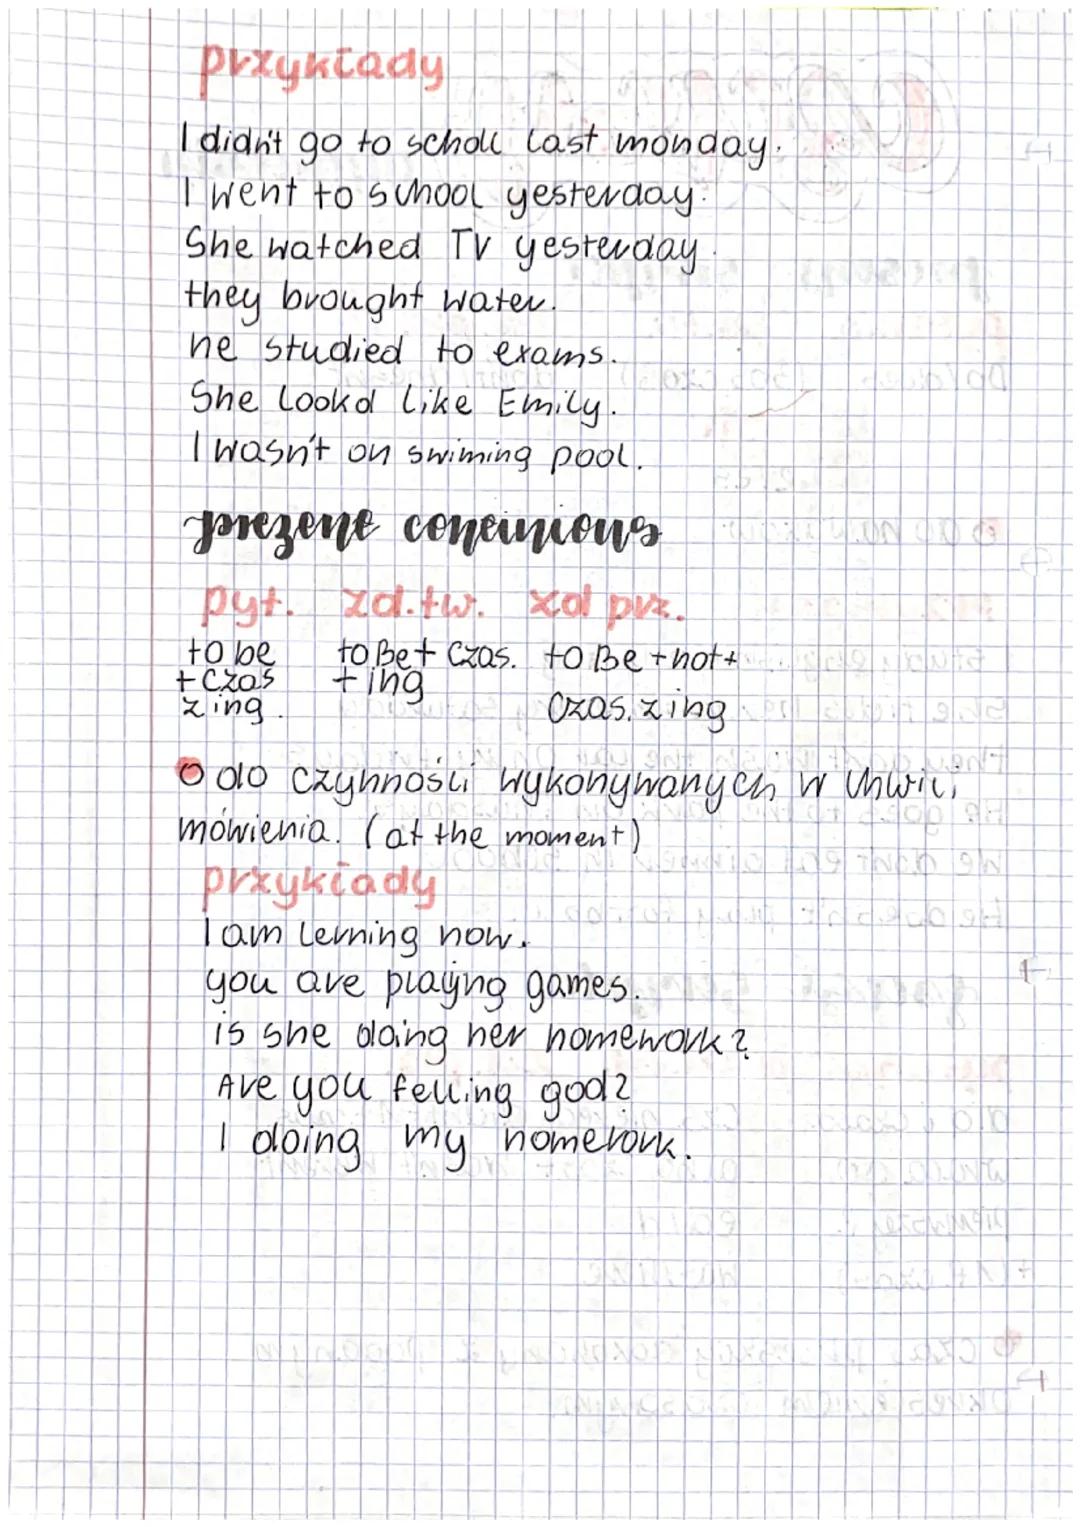 przykłady
I didn't go to scholl last monday.
I went to school yesterday.
She watched TV yesterday.
they brought water.
he studied to exams.
She lookd like Emily.
I wasn't on swiming pool.
prezent conttinious
pyt. zd.tw. zd prz.
to be to Be + czas. to Be + not +
+ czas + ing
z ing. Czas. z ing
do czynności wykonywanych w chwili
mówienia. (at the moment)
przykłady
I am lerning now.
you are playing games.
is she doing her homework?
Are you felling god?
I doing my homework.